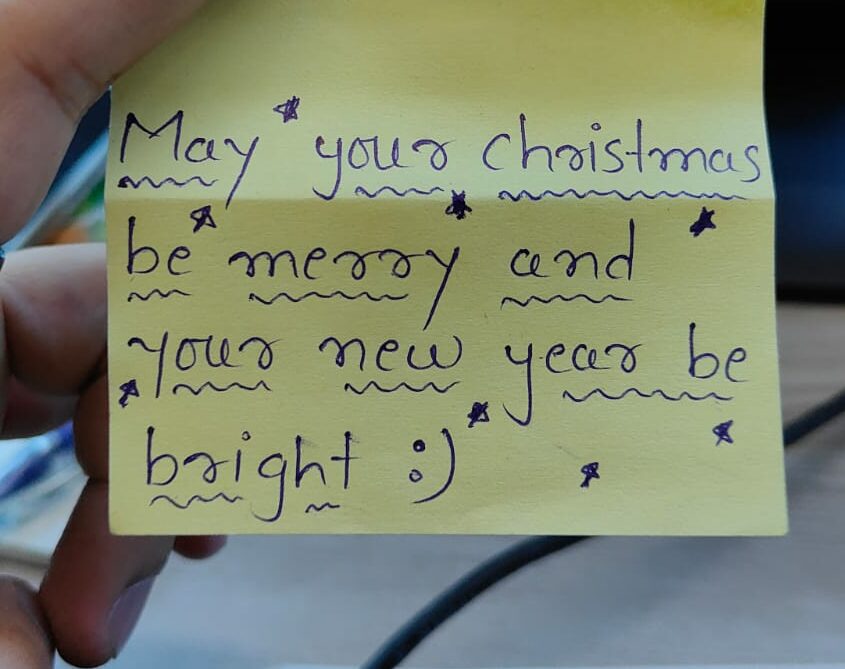 May your christmas
be merry and
your new year be
bright :)